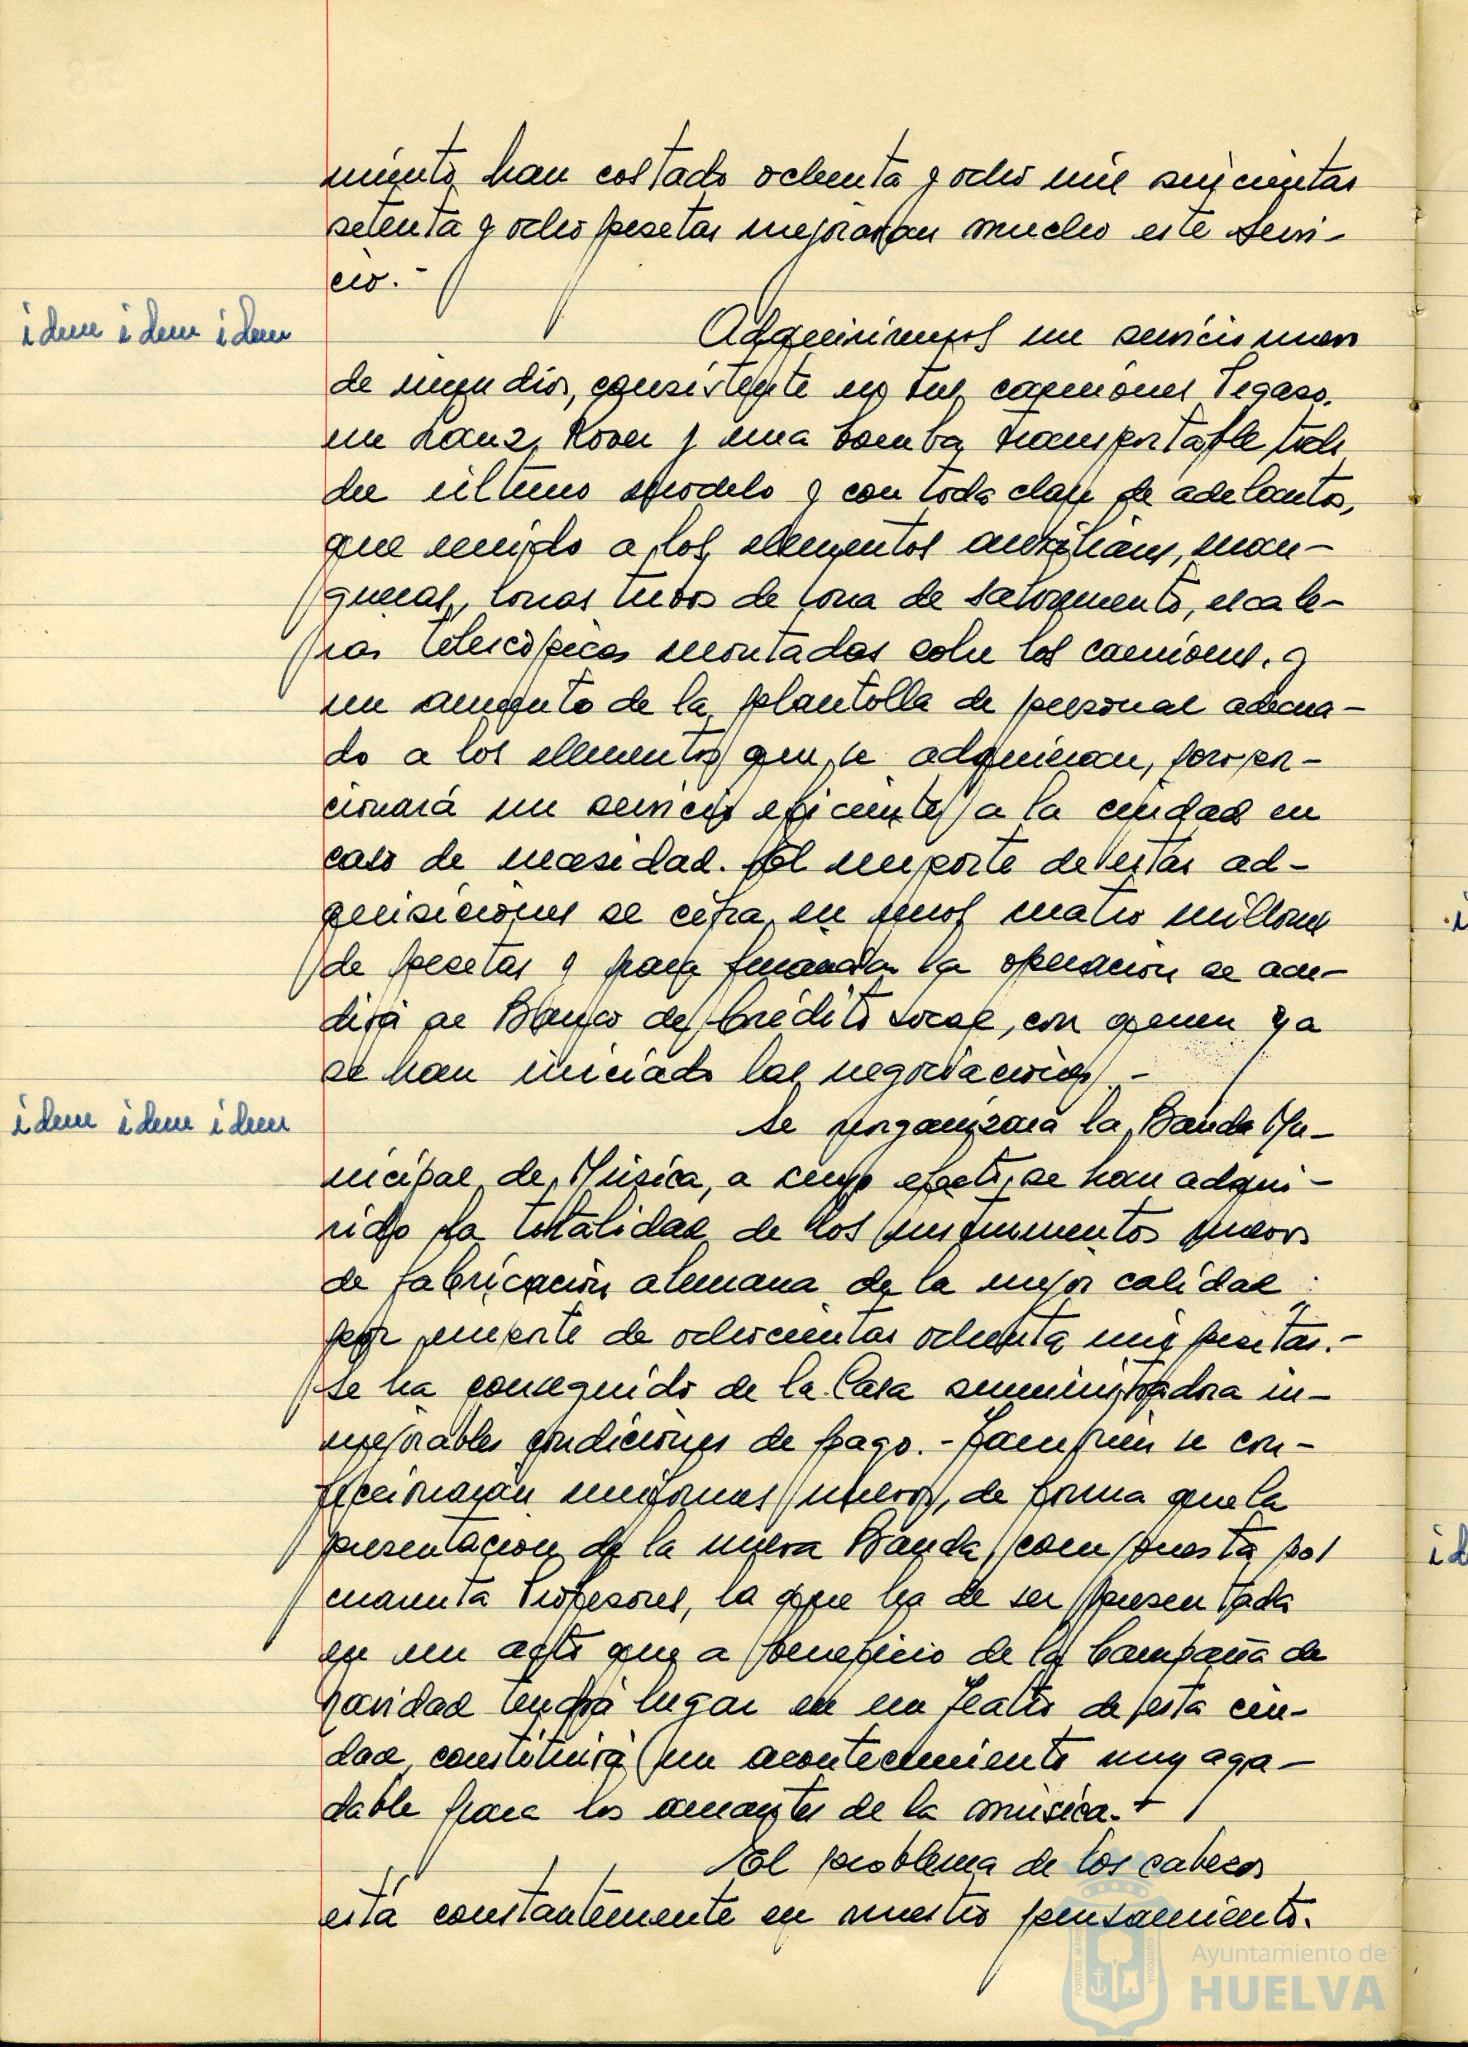 miento han costado ochenta y ocho mil seiscientas
setenta y ocho pesetas mejoraran mucho este servi-
cio.-
idem idem idem
Adquiriremos un servicio nuevo
de incendios, consistente en tres camiones Pegaso,
un Lanz Rover y una bomba transportable, todo
del último modelo y con toda clase de adelantos,
que unido a los elementos auxiliares, man-
gueras, lonas tubos de lona de salvamento, escale-
ras telescópicas montadas sobre los camiones, y
un aumento de la plantilla de personal adecua-
do a los elementos que se adquieran, propor-
cionará un servicio eficiente a la ciudad en
caso de necesidad. El importe de estas ad-
quisiciones se cifra en unos cuatro millones
de pesetas y para financiar la operación se acu-
dirá al Banco de Crédito Local, con quien ya
se han iniciado las negociaciones.-
idem idem idem
Se reorganizará la Banda Mu-
nicipal de Música, a cuyo efecto, se han adqui-
rido la totalidad de los instrumentos nuevos
de fabricación alemana de la mejor calidad
por importe de ochocientas ochenta mil pesetas.-
Se ha conseguido de la Casa suministradora in-
mejorables condiciones de pago.- También se con-
feccionarán uniformes nuevos, de forma que la
presentación de la nueva Banda, compuesta por
cuarenta Profesores, la que ha de ser presentada
en un acto que a beneficio de la Campaña de
navidad tendrá lugar en un Teatro de esta ciu-
dad, constituirá un acontecimiento muy agra-
dable para los amantes de la música.-
El problema de los cabezos
está constantemente en nuestro pensamiento.
Ayuntamiento de
HUELVA